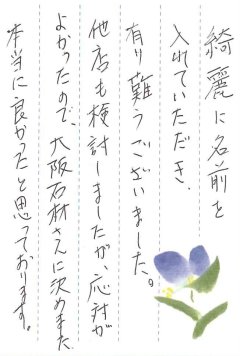 綺麗に名前を
入れていただき、
有り難うございました。
他店も検討しましたが、応対が
よかったので、大阪石材さんに決めまた
本当に良かったと思っております。